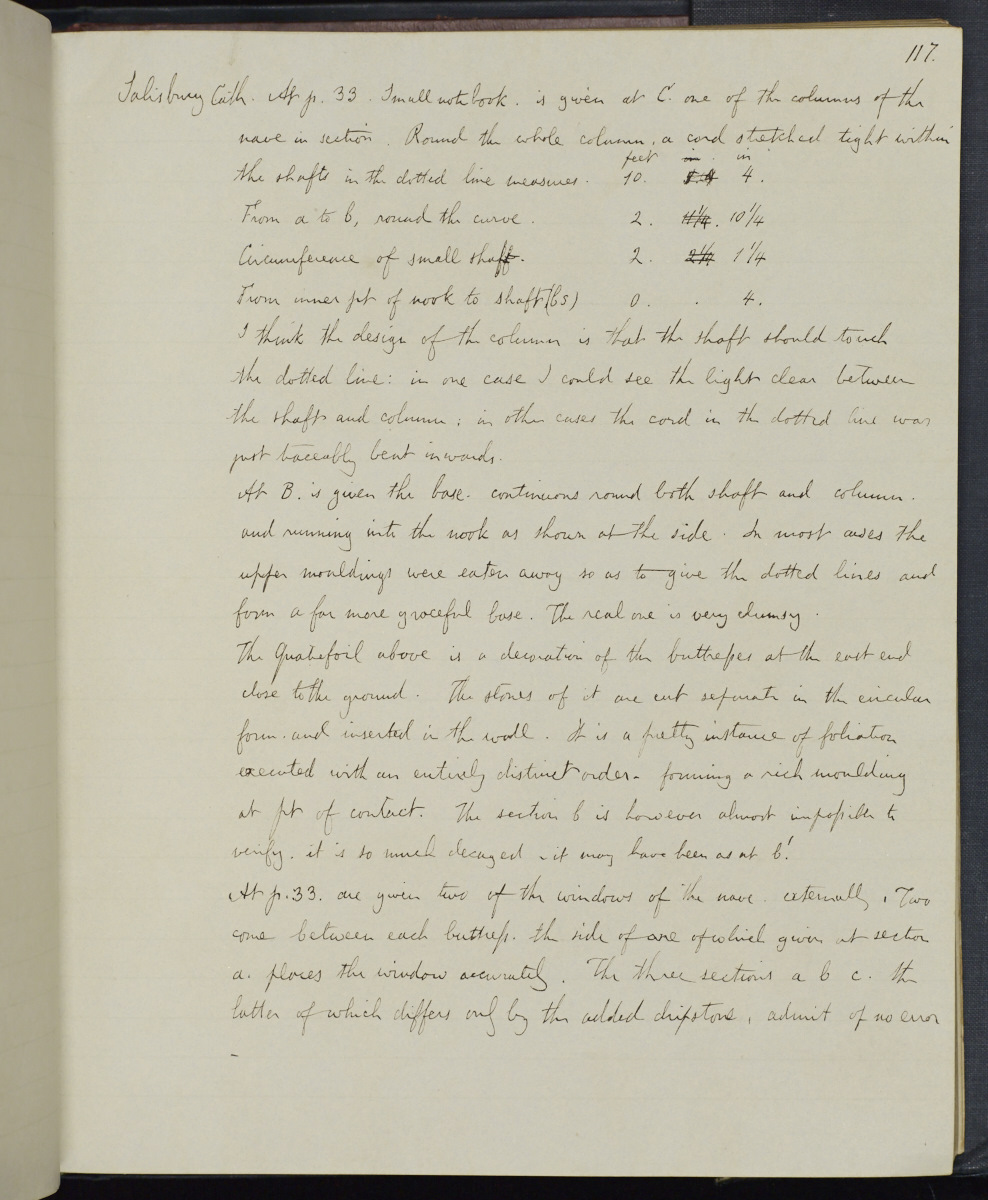 117.
Salisbury Cath. At p. 33. Small notebook. is given at C. one of the columns of the
nave in section. Round the whole column, a cord stretched tight within
feet in. in
the shafts in the dotted line measures. 10. 4.
From a to b, round the curve. 2. 11¼. 10¼
Circumference of small shaft. 2. 2¼ 1¼
From inner pt of nook to shaft (bs) 0. . 4.
I think the design of the column is that the shaft should touch
the dotted line: in one case I could see the light clear between
the shaft and column; in other cases the cord in the dotted line was
just traceably bent inwards.
At B. is given the base. continuous round both shaft and column.
and running into the nook as shown at the side. In most cases the
upper mouldings were eaten away so as to give the dotted lines and
form a far more graceful base. The real one is very clumsy.
The Quatrefoil above is a decoration of the buttresses at the east end
close to the ground. The stones of it are cut separate in the circular
form. and inserted in the wall. It is a pretty instance of foliation
executed with an entirely distinct order - forming a rich moulding
at pt of contact. The section b is however almost impossible to
verify. it is so much decayed - it may have been as at b'.
At p. 33. are given two of the windows of the nave. externally. Two
come between each buttress. the side of one of which given at section
a. places the window accurately. The three sections a b c. the
latter of which differs only by the added dripstone, admit of no error
-